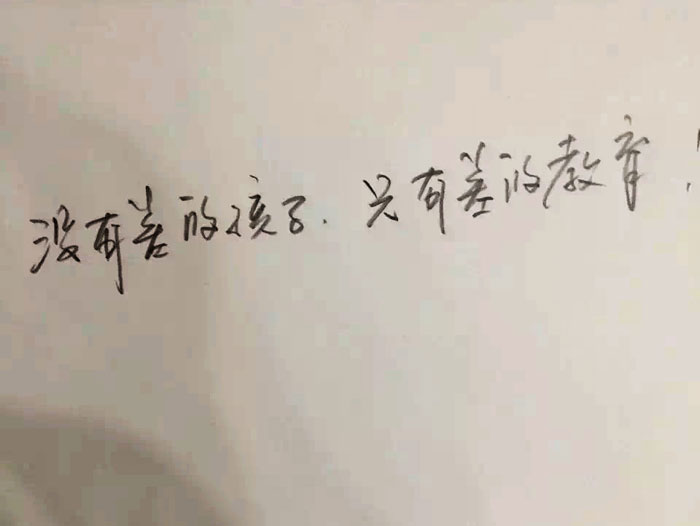 没有差的孩子.只有差的教育!